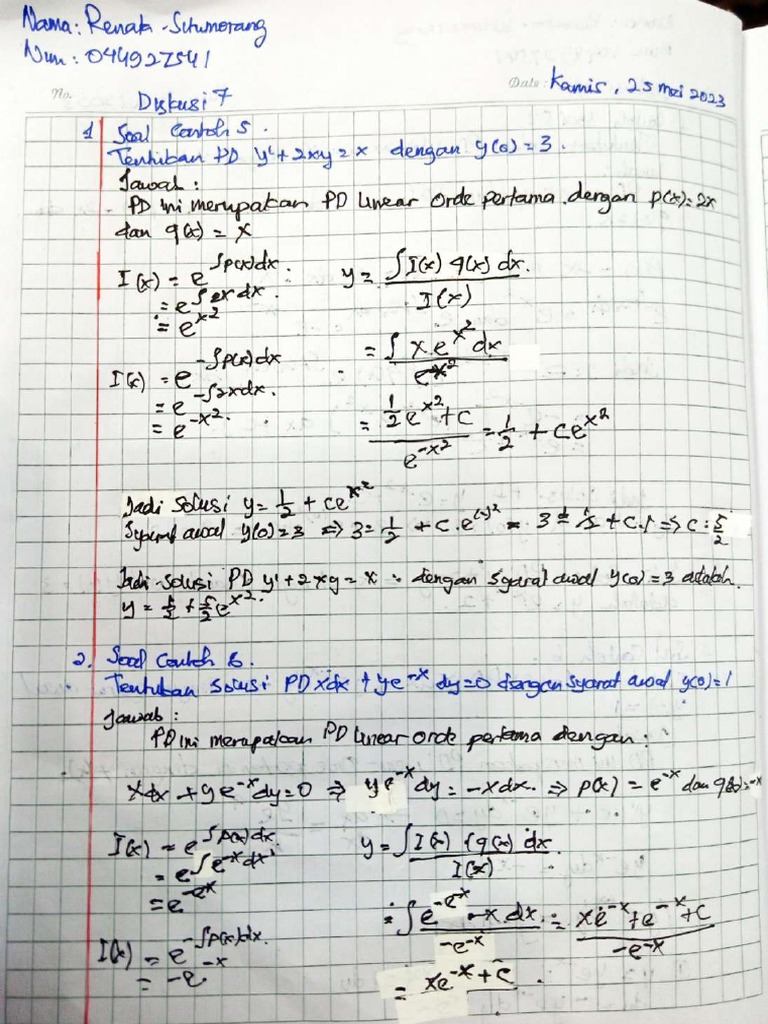 Nama: Renata Situmorang
Nim: 044927541
No.
Date: Kamis, 25 mei 2023
Diskusi 7
1 Soal Contoh 5.
Tentukan PD y' + 2xy = x dengan y(0) = 3.
Jawab:
PD ini merupakan PD Linear Orde pertama dengan p(x) = 2x
dan q(x) = x
I(x) = e^∫p(x)dx. y = ∫I(x) q(x) dx. / I(x)
= e^∫2x dx.
= e^x²
= ∫x.e^x² dx / e^-x²
I(x) = e^-∫p(x)dx
= e^-∫2xdx.
= e^-x².
= ½e^x² + C / e^-x² = ½ + Ce^x²
Jadi Solusi y = ½ + ce^x²
Syarat awal y(0) = 3 ⇒ 3 = ½ + C.e^(0)² = 3 = ½ + C.1 ⇒ C: 5/2
Jadi Solusi PD y' + 2xy = x dengan syarat awal y(0) = 3 adalah
y = ½ + 5/2 e^x².
2. Soal Contoh 6.
Tentukan Solusi PD xdx + ye^-x dy = 0 dengan syarat awal y(0) = 1
Jawab:
PD ini merupakan PD Linear orde pertama dengan:
xdx + ye^-x dy = 0 ⇒ ye^-x dy = -xdx ⇒ p(x) = e^-x dan q(x) = -x
I(x) = e^∫p(x)dx. y = ∫I(x) (q(x) dx. / I(x)
= e^∫e^-x dx
= e^-e^x
= ∫e^-e^-x -x.dx / -e^-x = xe^-x + e^-x + C / -e^-x
I(x) = e^-∫p(x)dx.
= -e^-x
= xe^-x + C.